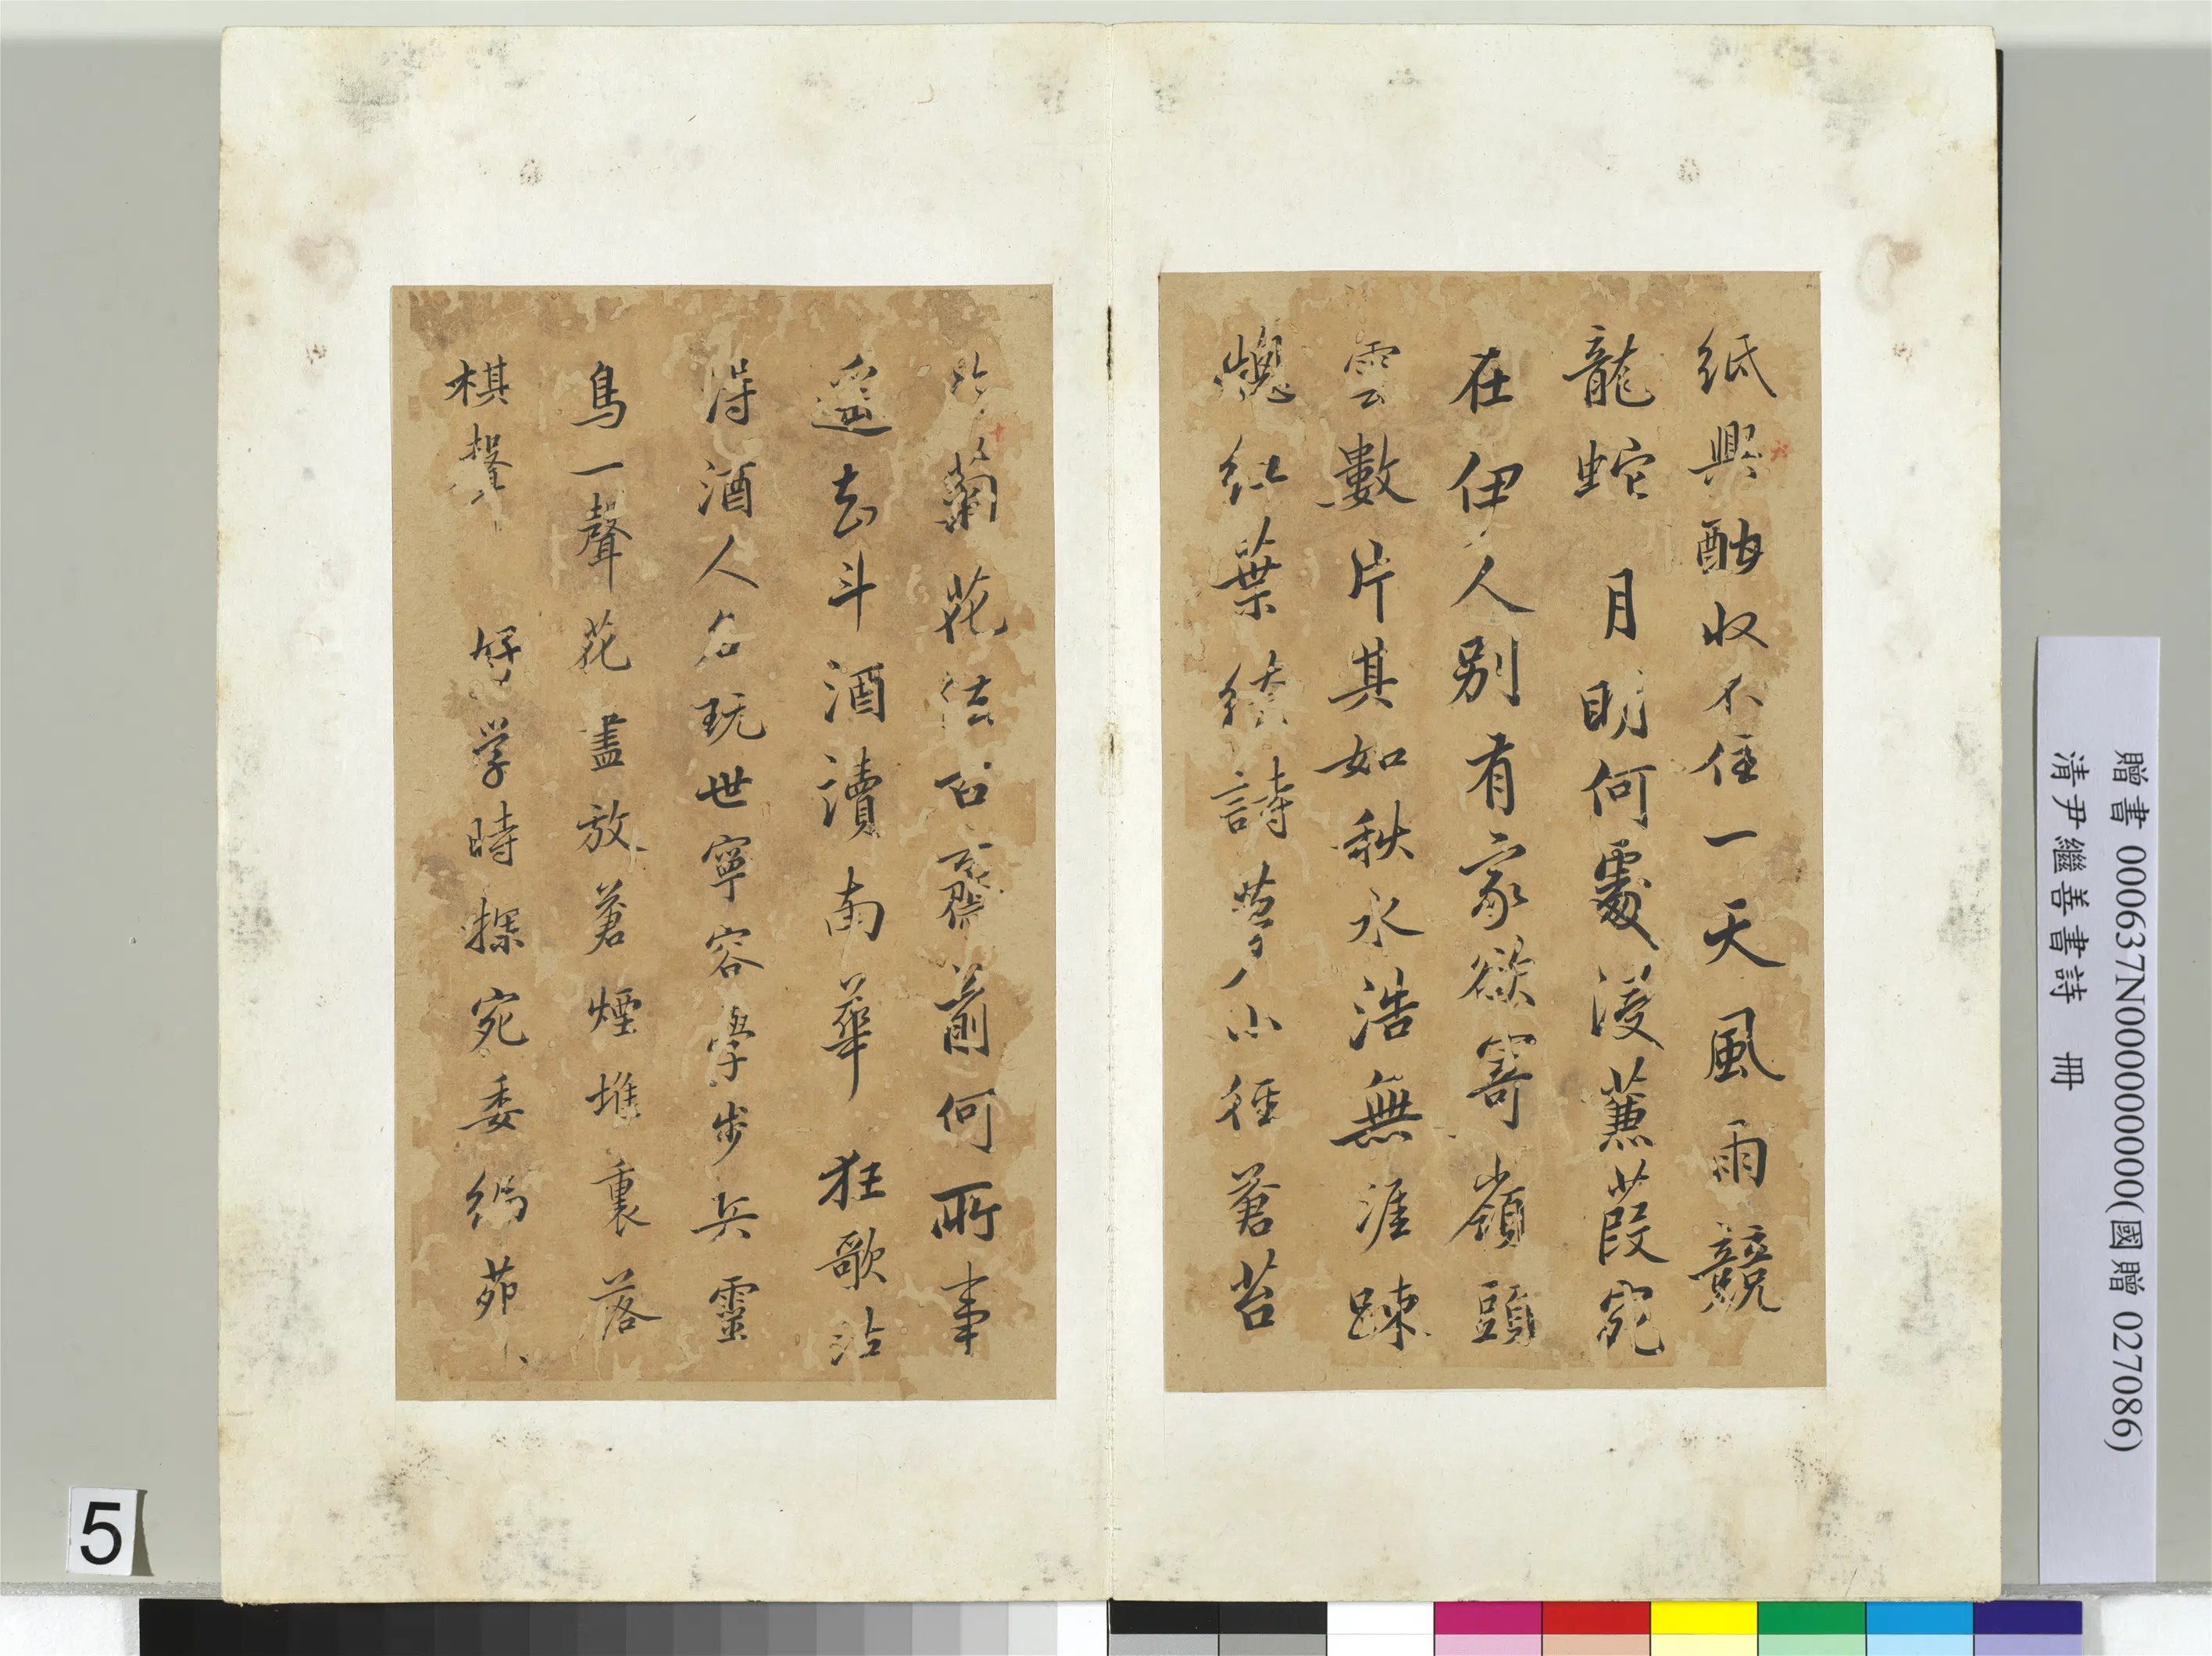 紙興酣収不住一天風雨競
龍蛇 月明何處浸蒹葭宛
在伊人别有家欲寄嶺頭
雲數片其如秋水浩無涯踈
紅葉續詩夢小徑蒼苔
菊花 石 前何所事
去斗酒讀南華 狂歌沽
得酒人名玩世寧容學步兵靈
鳥一聲花盡放蒼煙堆裏落
棋 好学時探宛委編茆
贈書 000637N000000000(國贈 027086)
清尹繼善書詩 冊
5